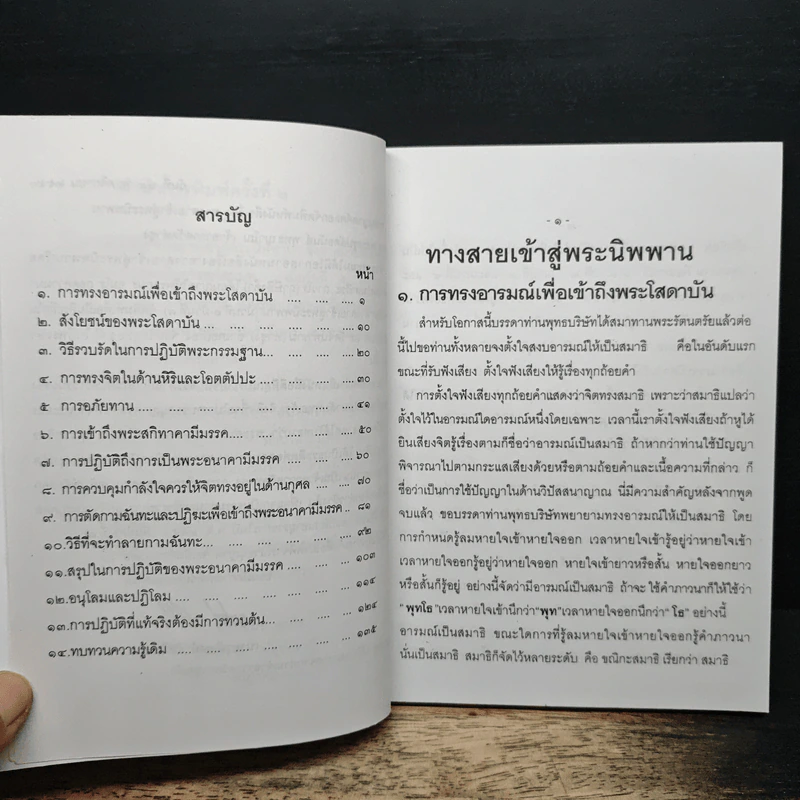 สารบัญ
หน้า
๑. การทรงอารมณ์เพื่อเข้าถึงพระโสดาบัน .... .... ... ๑
๒. สังโยชน์ของพระโสดาบัน ... ... .... .... ... ๑๐
๓. วิธีรวบรัดในการปฏิบัติพระกรรมฐาน... .... .... ... ๒๐
๔. การทรงจิตในด้านหิริและโอตตัปปะ .... .... .... ... ๓๐
๕ การอภัยทาน .... .... .... .... .... ... ๔๑
๖. การเข้าถึงพระสกิทาคามีมรรค.... .... .... .... ๕๐
๗. การปฏิบัติถึงการเป็นพระอนาคามีมรรค .... .... .... ๖๐
๘. การควบคุมกำลังใจควรให้จิตทรงอยู่ในด้านกุศล .... .... ๗๐
๙. การตัดกามฉันทะและปฏิฆะเพื่อเข้าถึงพระอนาคามีมรรค.. .... ๘๑
๑๐.วิธีที่จะทำลายกามฉันทะ... .... .... .... .... ๙๒
๑๑.สรุปในการปฏิบัติของพระอนาคามีมรรค .... .... .... ๑๐๓
๑๒.อนุโลมและปฏิโลม .... .... .... .... .... ๑๑๔
๑๓.การปฏิบัติที่แท้จริงต้องมีการทวนต้น... .... .... .... ๑๒๔
๑๔.ทบทวนความรู้เดิม .... .... .... .... .... ๑๓๕
- ๑ -
ทางสายเข้าสู่พระนิพพาน
๑. การทรงอารมณ์เพื่อเข้าถึงพระโสดาบัน
สำหรับโอกาสนี้บรรดาท่านพุทธบริษัทได้สมาทานพระรัตนตรัยแล้วต่อ
นี้ไปขอท่านทั้งหลายจงตั้งใจสงบอารมณ์ให้เป็นสมาธิ คือในอันดับแรก
ขณะที่รับฟังเสียง ตั้งใจฟังเสียงให้รู้เรื่องทุกถ้อยคำ
การตั้งใจฟังเสียงทุกถ้อยคำแสดงว่าจิตทรงสมาธิ เพราะว่าสมาธิแปลว่า
ตั้งใจไว้ในอารมณ์ใดอารมณ์หนึ่งโดยเฉพาะ เวลานี้เราตั้งใจฟังเสียงถ้าหูได้
ยินเสียงจิตรู้เรื่องตามก็ชื่อว่าอารมณ์เป็นสมาธิ ถ้าหากว่าท่านใช้ปัญญา
พิจารณาไปตามกระแสเสียงด้วยหรือตามถ้อยคำและเนื้อความที่กล่าว ก็
ชื่อว่าเป็นการใช้ปัญญาในด้านวิปัสสนาญาณ นี่มีความสำคัญหลังจากพูด
จบแล้ว ขอบรรดาท่านพุทธบริษัทพยายามทรงอารมณ์ให้เป็นสมาธิ โดย
การกำหนดรู้ลมหายใจเข้าหายใจออก เวลาหายใจเข้ารู้อยู่ว่าหายใจเข้า
เวลาหายใจออกรู้อยู่ว่าหายใจออก หายใจเข้ายาวหรือสั้น หายใจออกยาว
หรือสั้นก็รู้อยู่ อย่างนี้จัดว่ามีอารมณ์เป็นสมาธิ ถ้าจะ ใช้คำภาวนาก็ให้ใช้ว่า
" พุทโธ "เวลาหายใจเข้านึกว่า"พุท"เวลาหายใจออกนึกว่า" โธ " อย่างนี้
อารมณ์เป็นสมาธิ ขณะใดการที่รู้ลมหายใจเข้าหายใจออกรู้คำภาวนา
นั่นเป็นสมาธิ สมาธิก็จัดไว้หลายระดับ คือ ขณิกะสมาธิ เรียกว่า สมาธิ